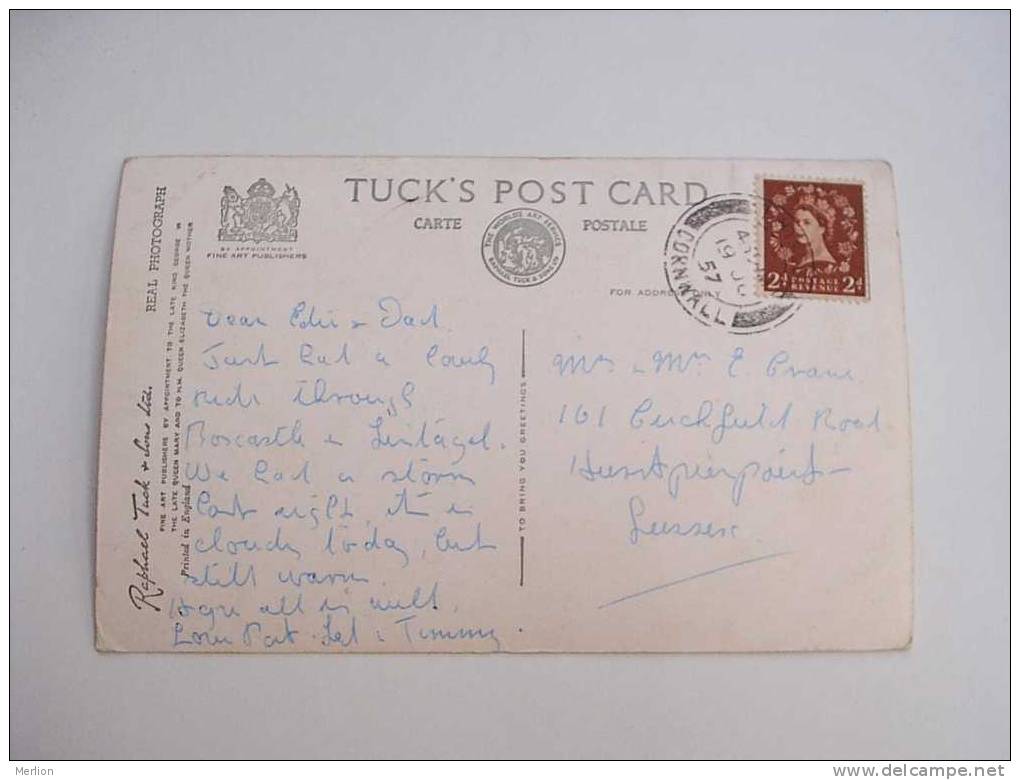 TUCK'S POST CARD
CARTE POSTALE
BY APPOINTMENT
FINE ART PUBLISHERS
THE WORLD'S ART SERVICE
RAPHAEL TUCK & SONS LTD
FOR ADDRESS ONLY
CORNWALL
19 JU 57
2d POSTAGE REVENUE 2d
REAL PHOTOGRAPH
Raphael Tuck & Sons Ltd.
FINE ART PUBLISHERS BY APPOINTMENT TO THE LATE KING GEORGE VI
THE LATE QUEEN MARY AND TO H.M. QUEEN ELIZABETH THE QUEEN MOTHER
Printed in England
Dear Edie & Dad.
Just had a lovely
ride through
Boscastle & Tintagel.
We had a storm
last night, it is
cloudy today, but
still warm.
Hope all is well.
Love Pat & Timmy.
TO BRING YOU GREETINGS
Mr & Mrs E.
161 Cuckfield Road
Hurstpierpoint
Sussex
Merlion
delcampe.net